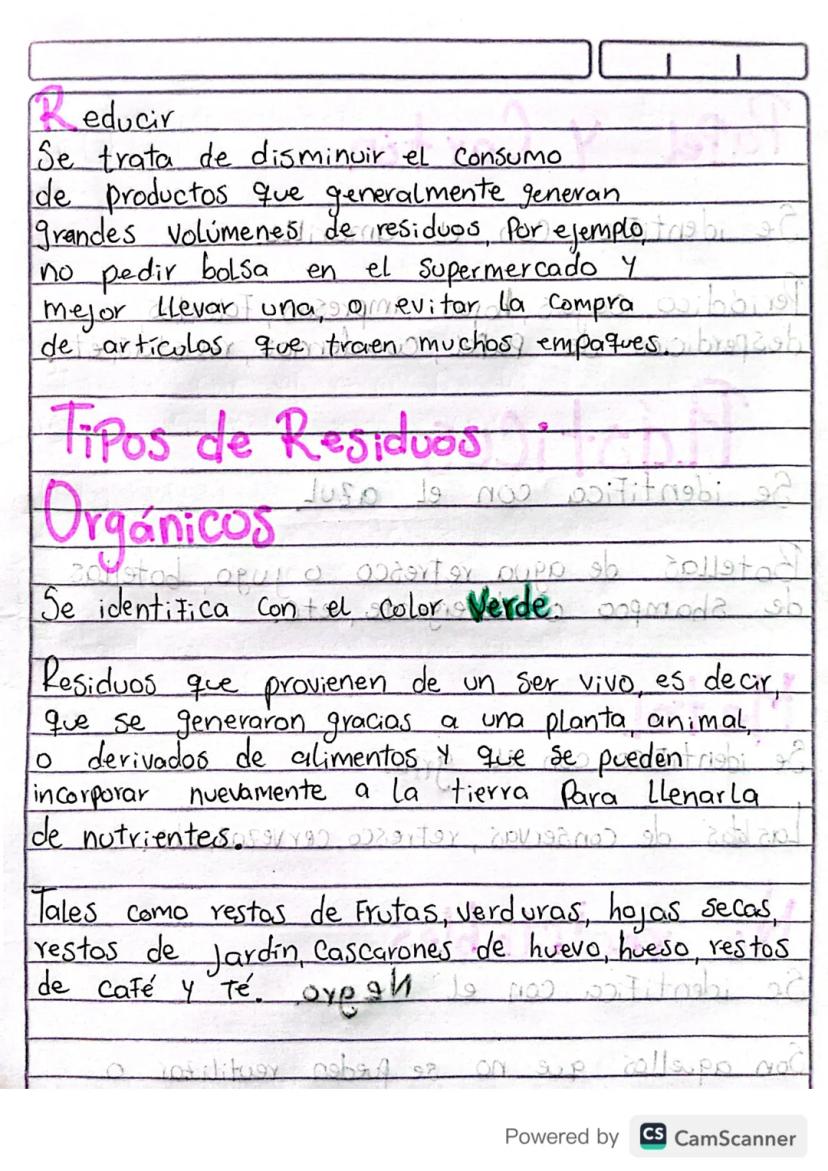 Reducir
Se trata de disminuir el consumo
de productos que generalmente generan
grandes volúmenes de residuos, Por ejemplo,
no pedir bolsa en el supermercado y
mejor llevar una, o evitar la compra
de artículos que traen muchos empaques.
Tipos de Residuos
Orgánicos
Se identifica con el color Verde
Residuos que provienen de un ser vivo, es decir,
que se generaron gracias a una planta, animal,
o derivados de alimentos y que se pueden
incorporar nuevamente a la tierra Para llenarla
de nutrientes.
Tales como restos de Frutas, verduras, hojas secas,
restos de Jardín, Cascarones de huevo, hueso, restos
de café y té.
Powered by CS CamScanner